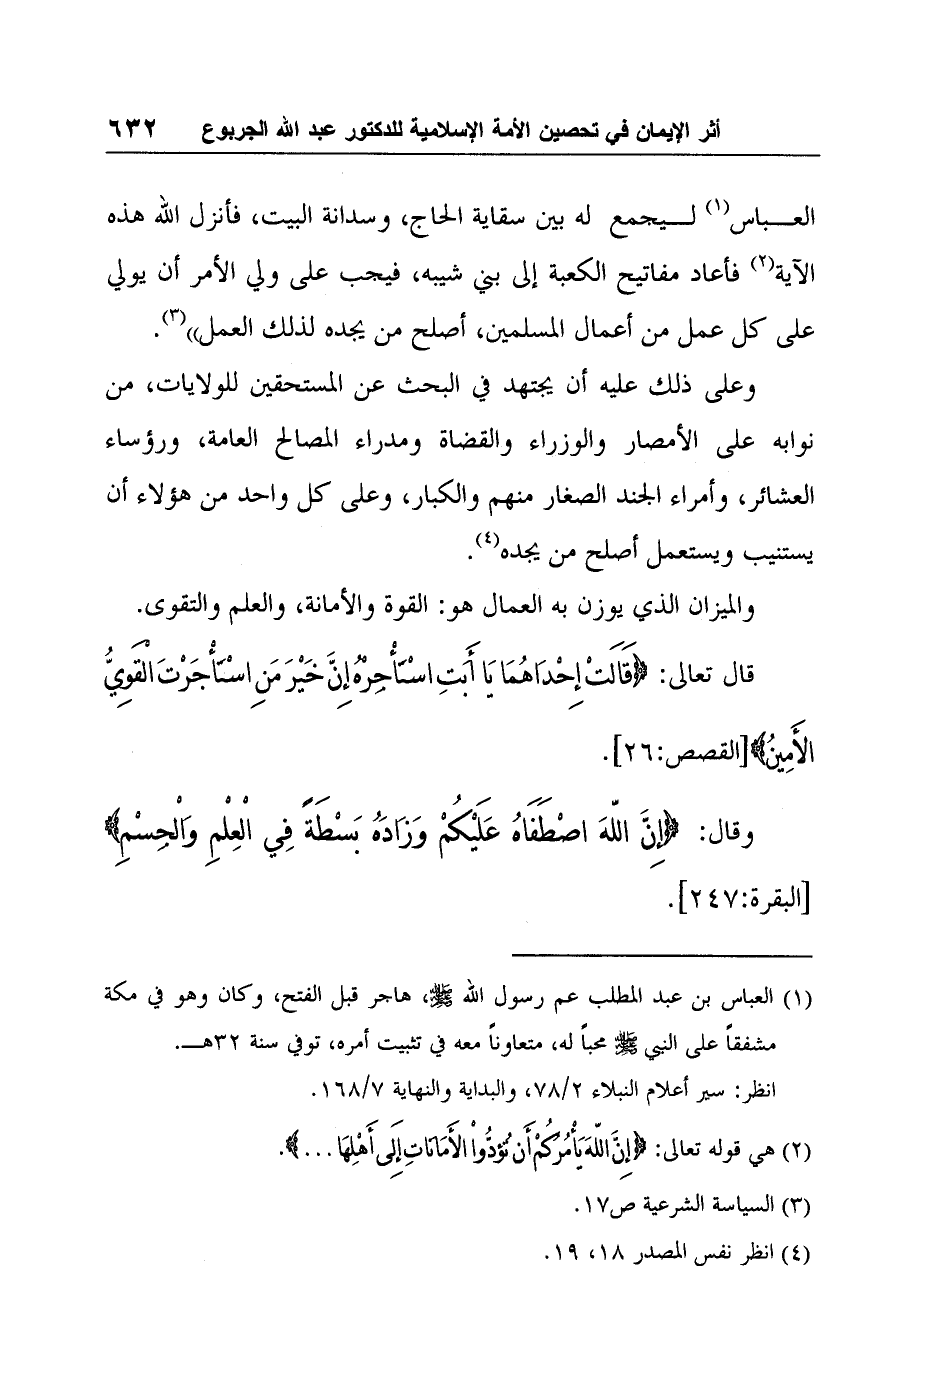 أثر الإيمان في تحصين الأمة الإسلامية للدكتور عبد الله الجربوع ٦٣٢
العـــباس(١) لــيجمع له بين سقاية الحاج، وسدانة البيت، فأنزل الله هذه
الآية(٢) فأعاد مفاتيح الكعبة إلى بني شيبه، فيجب على ولي الأمر أن يولي
على كل عمل من أعمال المسلمين، أصلح من يجده لذلك العمل))(٣).
وعلى ذلك عليه أن يجتهد في البحث عن المستحقين للولايات، من
نوابه على الأمصار والوزراء والقضاة ومدراء المصالح العامة، ورؤساء
العشائر، وأمراء الجند الصغار منهم والكبار، وعلى كل واحد من هؤلاء أن
يستنيب ويستعمل أصلح من يجده(٤).
والميزان الذي يوزن به العمال هو: القوة والأمانة، والعلم والتقوى.
قال تعالى: ﴿قَالَتْ إِحْدَاهُمَا يَا أَبَتِ اسْتَأْجِرْهُ إِنَّ خَيْرَ مَنِ اسْتَأْجَرْتَ الْقَوِيُّ
الأَمِينُ﴾[القصص:٢٦].
وقال: ﴿إِنَّ اللَّهَ اصْطَفَاهُ عَلَيْكُمْ وَزَادَهُ بَسْطَةً فِي الْعِلْمِ وَالْجِسْمِ﴾
[البقرة:٢٤٧].
(١) العباس بن عبد المطلب عم رسول الله ﷺ، هاجر قبل الفتح، وكان وهو في مكة
مشفقاً على النبي ﷺ محباً له، متعاوناً معه في تثبيت أمره، توفي سنة ٣٢هــ.
انظر: سير أعلام النبلاء ٧٨/٢، والبداية والنهاية ١٦٨/٧.
(٢) هي قوله تعالى: ﴿إِنَّ اللَّهَ يَأْمُرُكُمْ أَن تُؤَدُّوا الأَمَانَاتِ إِلَى أَهْلِهَا ...﴾.
(٣) السياسة الشرعية ص١٧.
(٤) انظر نفس المصدر ١٨، ١٩.